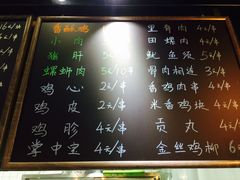 香酥鸡
小肉
猪肝 5元
螺蛳肉 5元/10串
鸡心 2元/串
鸡皮 2元/串
鸡胗 4元/串
掌中宝 4元/串
里脊肉 4元/串
田螺肉 4元/串
鱿鱼须 5元/串
骨肉相连 3元/串
香鸡肉串 4元/串
米香鸡块 4元/串
贡丸 4元/串
金丝鸡柳 6元